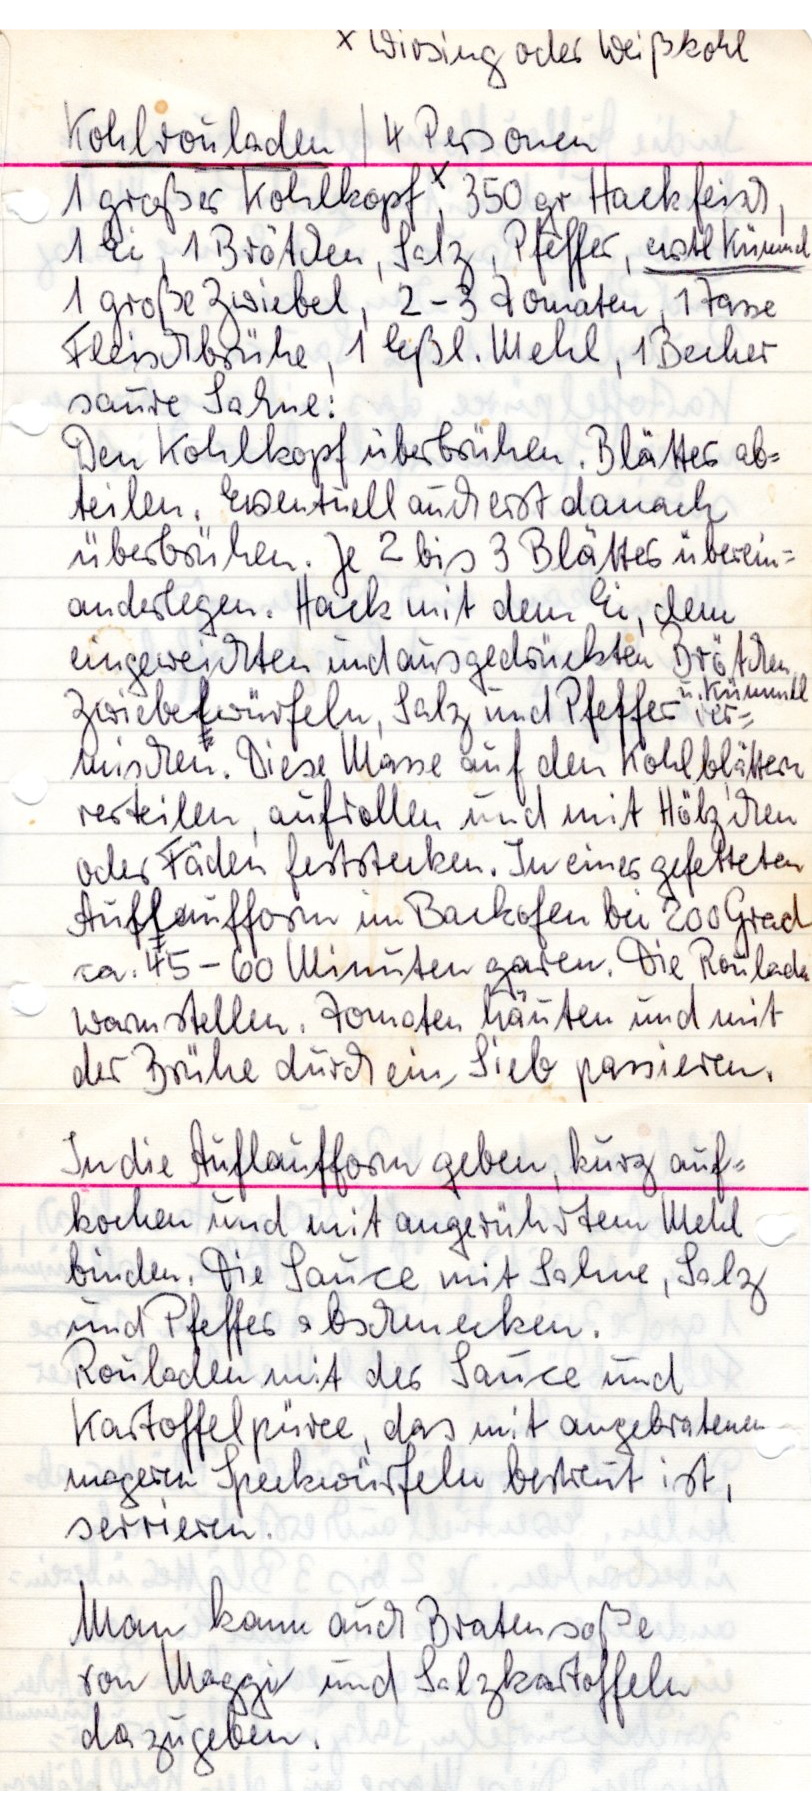 x Wirsing oder Weißkohl
Kohlrouladen / 4 Personen
1 großer Kohlkopf x, 350 gr Hackfeisch,
1 Ei, 1 Brötchen, Salz, Pfeffer, evtl Kümmel
1 große Zwiebel, 2-3 Tomaten, 1 Tasse
Fleischbrühe, 1 Eßl. Mehl, 1 Becher
saure Sahne:
Den Kohlkopf überbrühen. Blätter ab=
teilen. Eventuell auch erst danach
überbrühen. Je 2 bis 3 Blätter überein=
anderlegen. Hack mit dem Ei, dem
eingeweichten und ausgedrückten Brötchen,
u. Kümmel
Zwiebelwürfeln, Salz und Pfeffer ver=
mischen. Diese Masse auf den Kohlblättern
verteilen, aufrollen und mit Hölzchen
oder Fäden feststecken. In einer gefetteten
Auflaufform im Backofen bei 200 Grad
ca. 45-60 Minuten garen. Die Roulade
warmstellen. Tomaten häuten und mit
der Brühe durch ein Sieb passieren.
In die Auflaufform geben, kurz auf=
kochen und mit angerührtem Mehl
binden. Die Sauce mit Sahne, Salz
und Pfeffer abschmecken.
Rouladen mit der Sauce und
Kartoffelpüree, das mit angebratenen
mageren Speckwürfeln bestreut ist,
servieren.
Man kann auch Bratensoße
von Maggi und Salzkartoffeln
dazugeben.